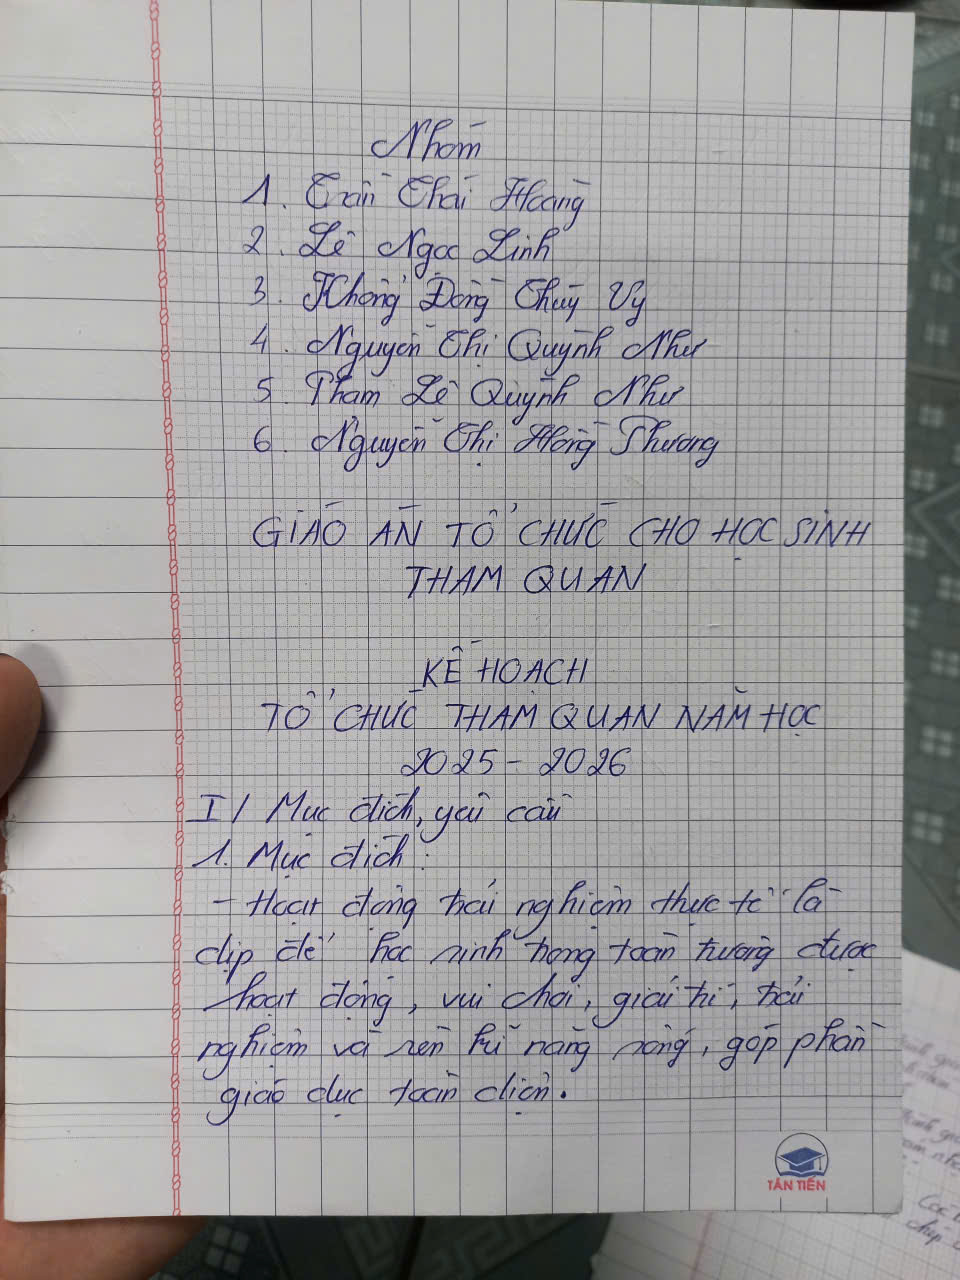 Nhóm
1. Trần Thái Hoàng
2. Lê Ngọc Linh
3. Khổng Đồng Thuý Vy
4. Nguyễn Thị Quỳnh Như
5. Phạm Lê Quỳnh Như
6. Nguyễn Thị Hồng Phương
GIÁO ÁN TỔ CHỨC CHO HỌC SINH
THAM QUAN
KẾ HOẠCH
TỔ CHỨC THAM QUAN NĂM HỌC
2025 - 2026
I/ Mục đích, yêu cầu
1. Mục đích:
- Hoạt động trải nghiệm thực tế là
dịp để học sinh trong toàn trường được
hoạt động, vui chơi, giải trí, trải
nghiệm và rèn kĩ năng sống, góp phần
giáo dục toàn diện.
TÂN TIẾN